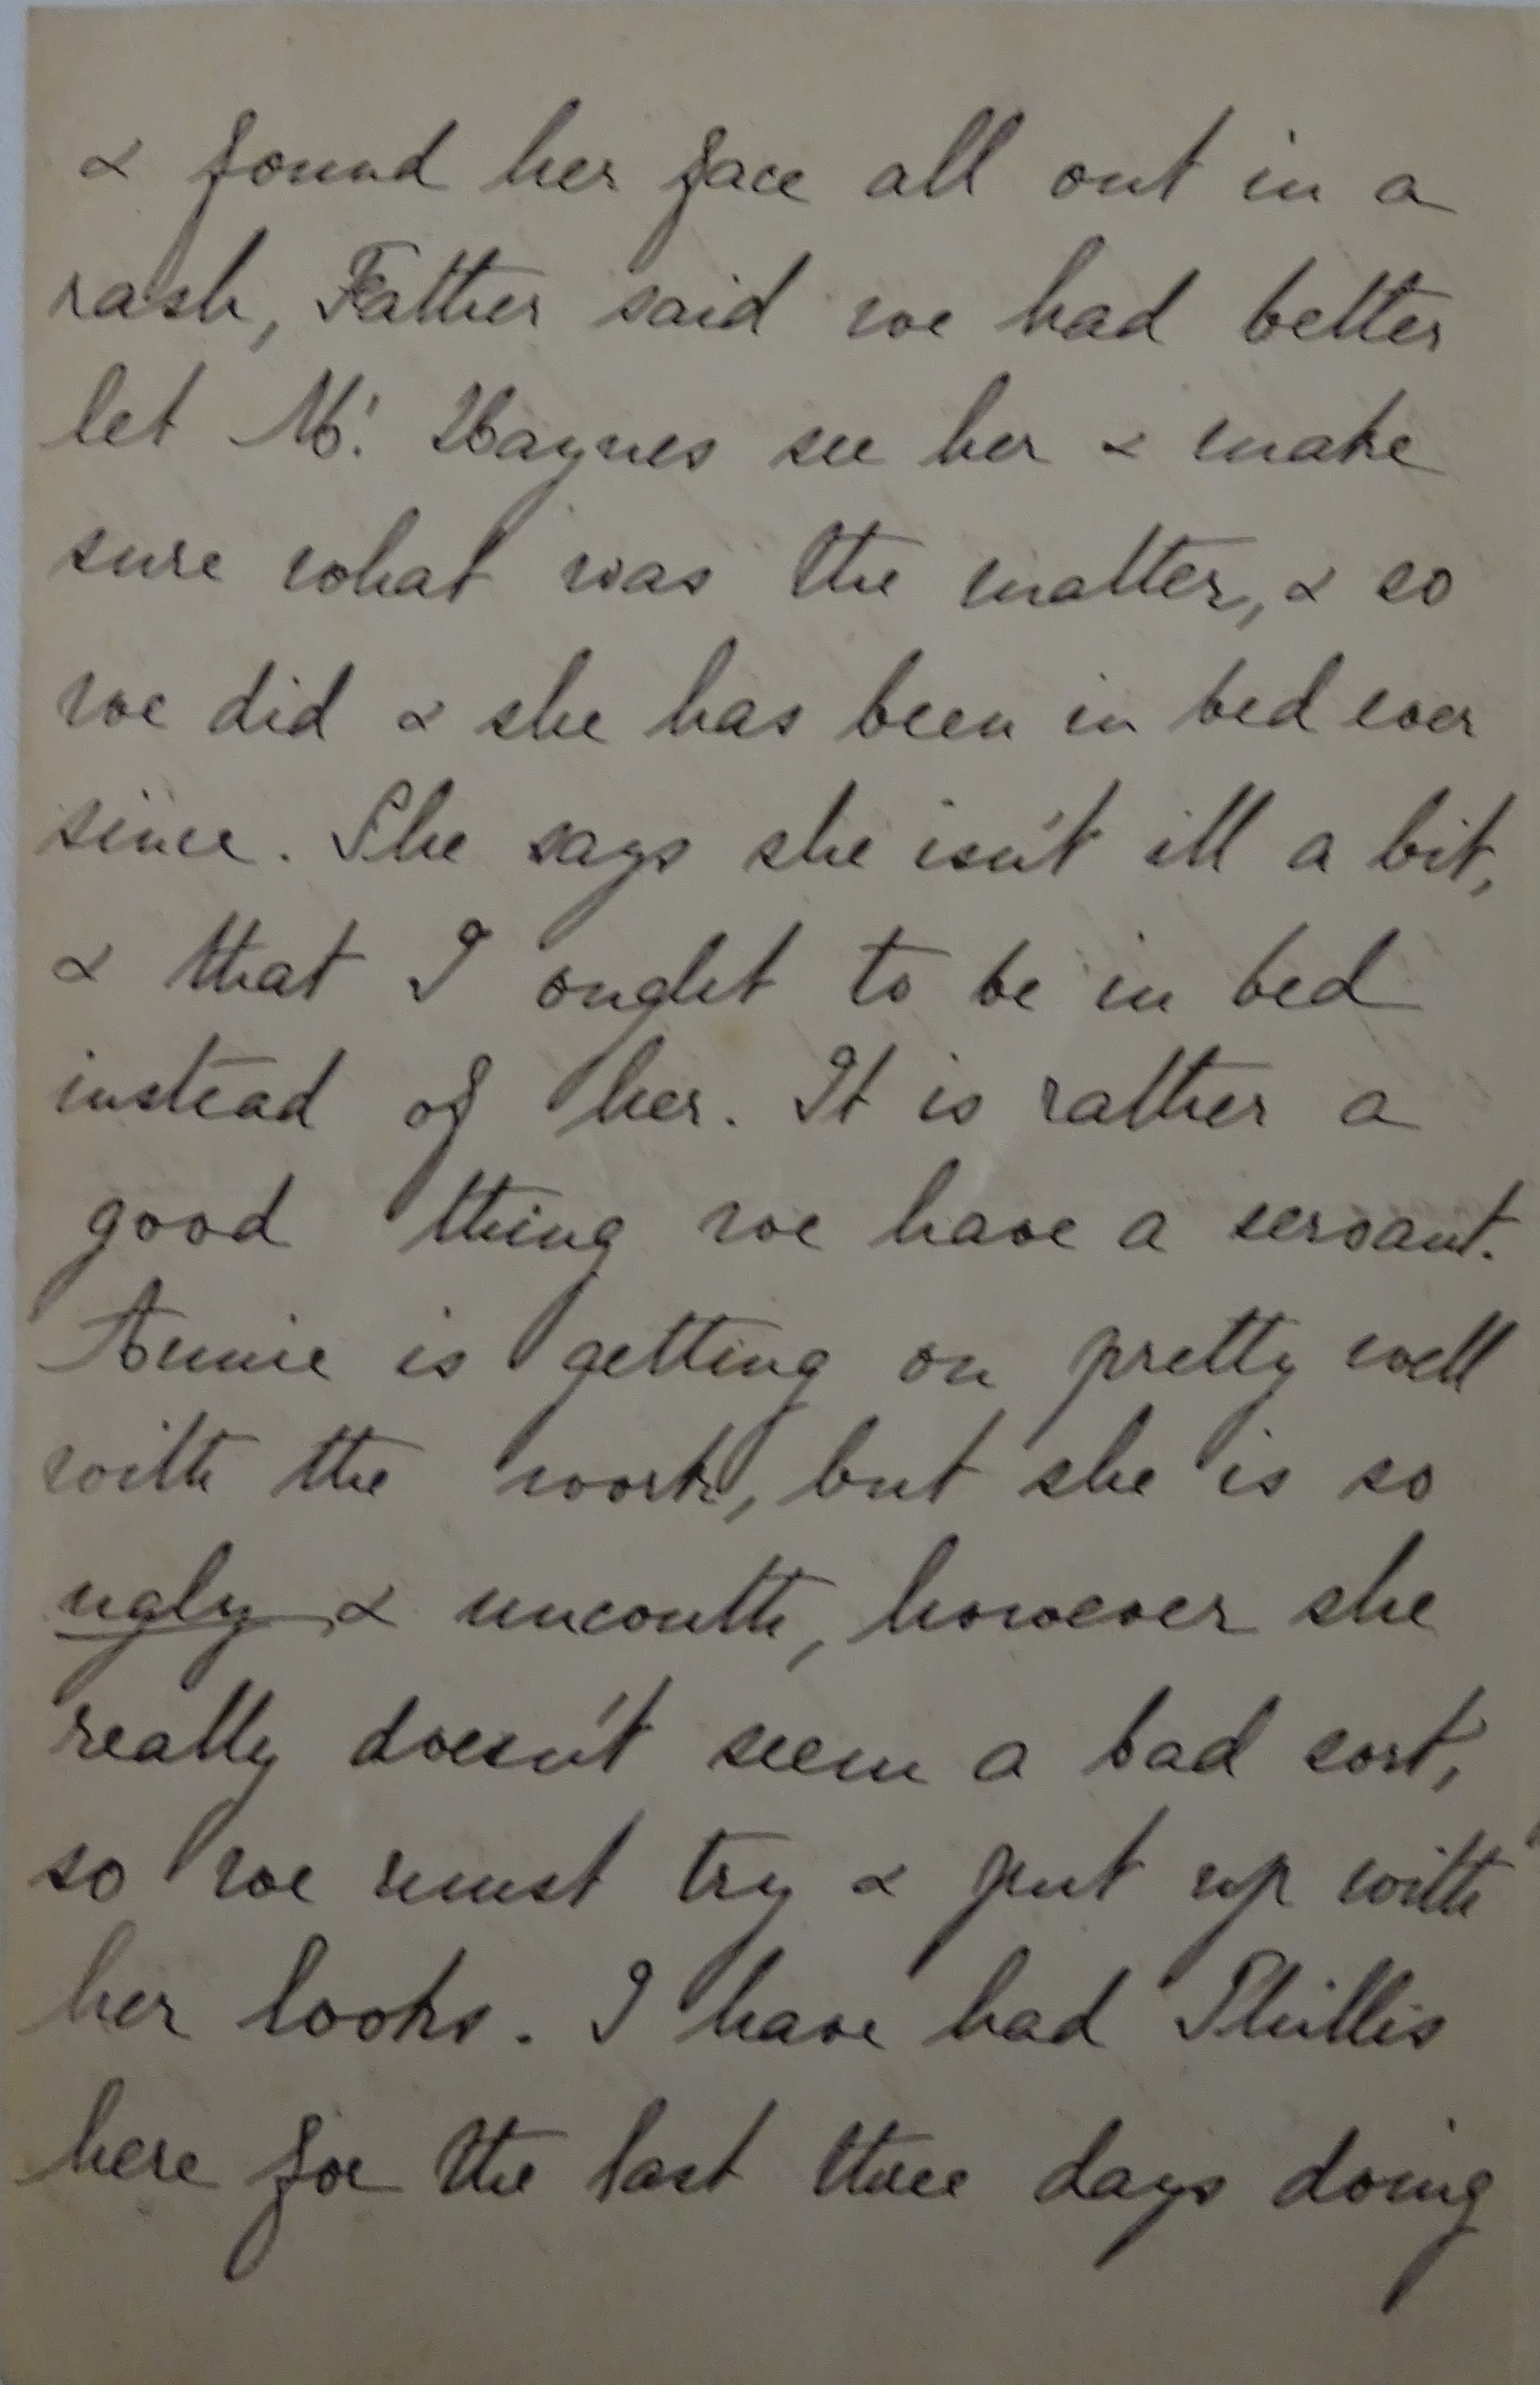 & found her face all out in a
rash, Father said we had better
let Mr. Haynes see her & make
sure what was the matter, & so
we did & she has been in bed ever
since. She says she isn't ill a bit,
& that I ought to be in bed
instead of her. It is rather a
good thing we have a servant.
Annie is getting on pretty well
with the work, but she is so
ugly & uncouth, however she
really doesn't seem a bad sort,
so we must try & put up with
her looks. I have had Phillis
here for the last three days doing